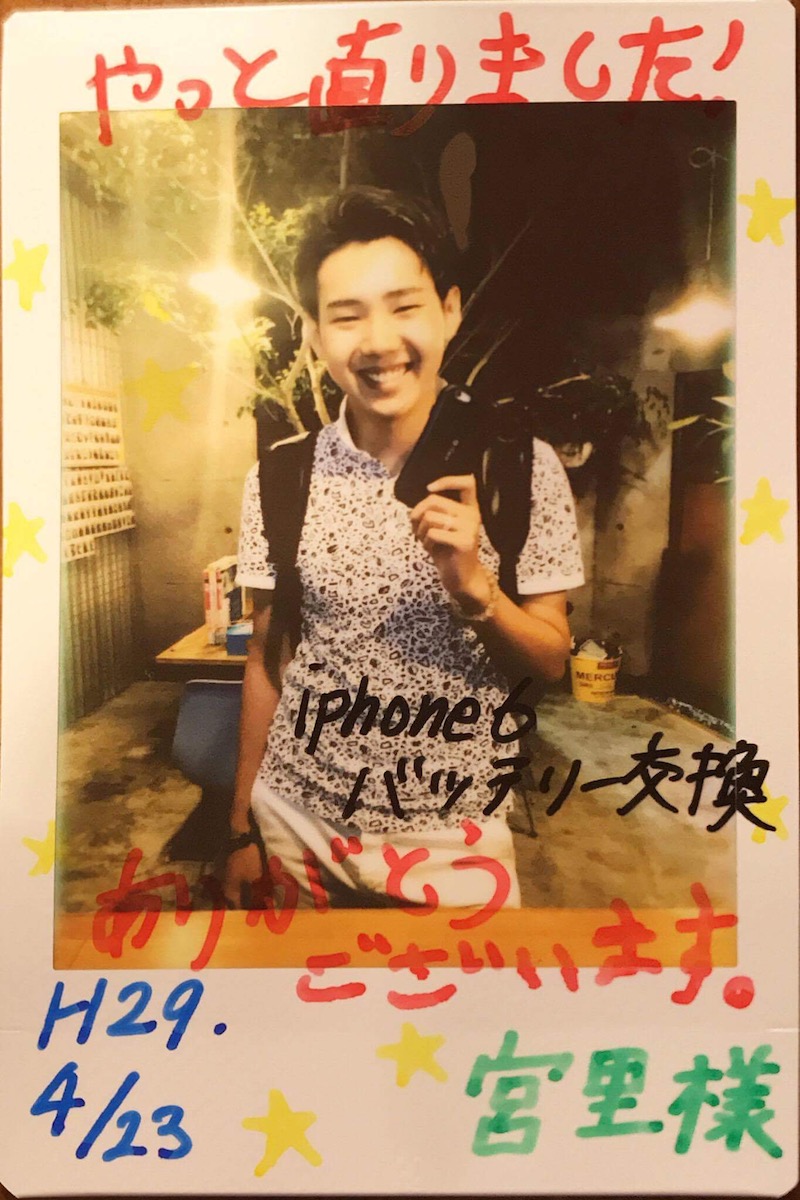 やっと直りました!
MERCU
iphone6
バッテリー交換
ありがとう
ございます。
H29.
4/23
宮里様